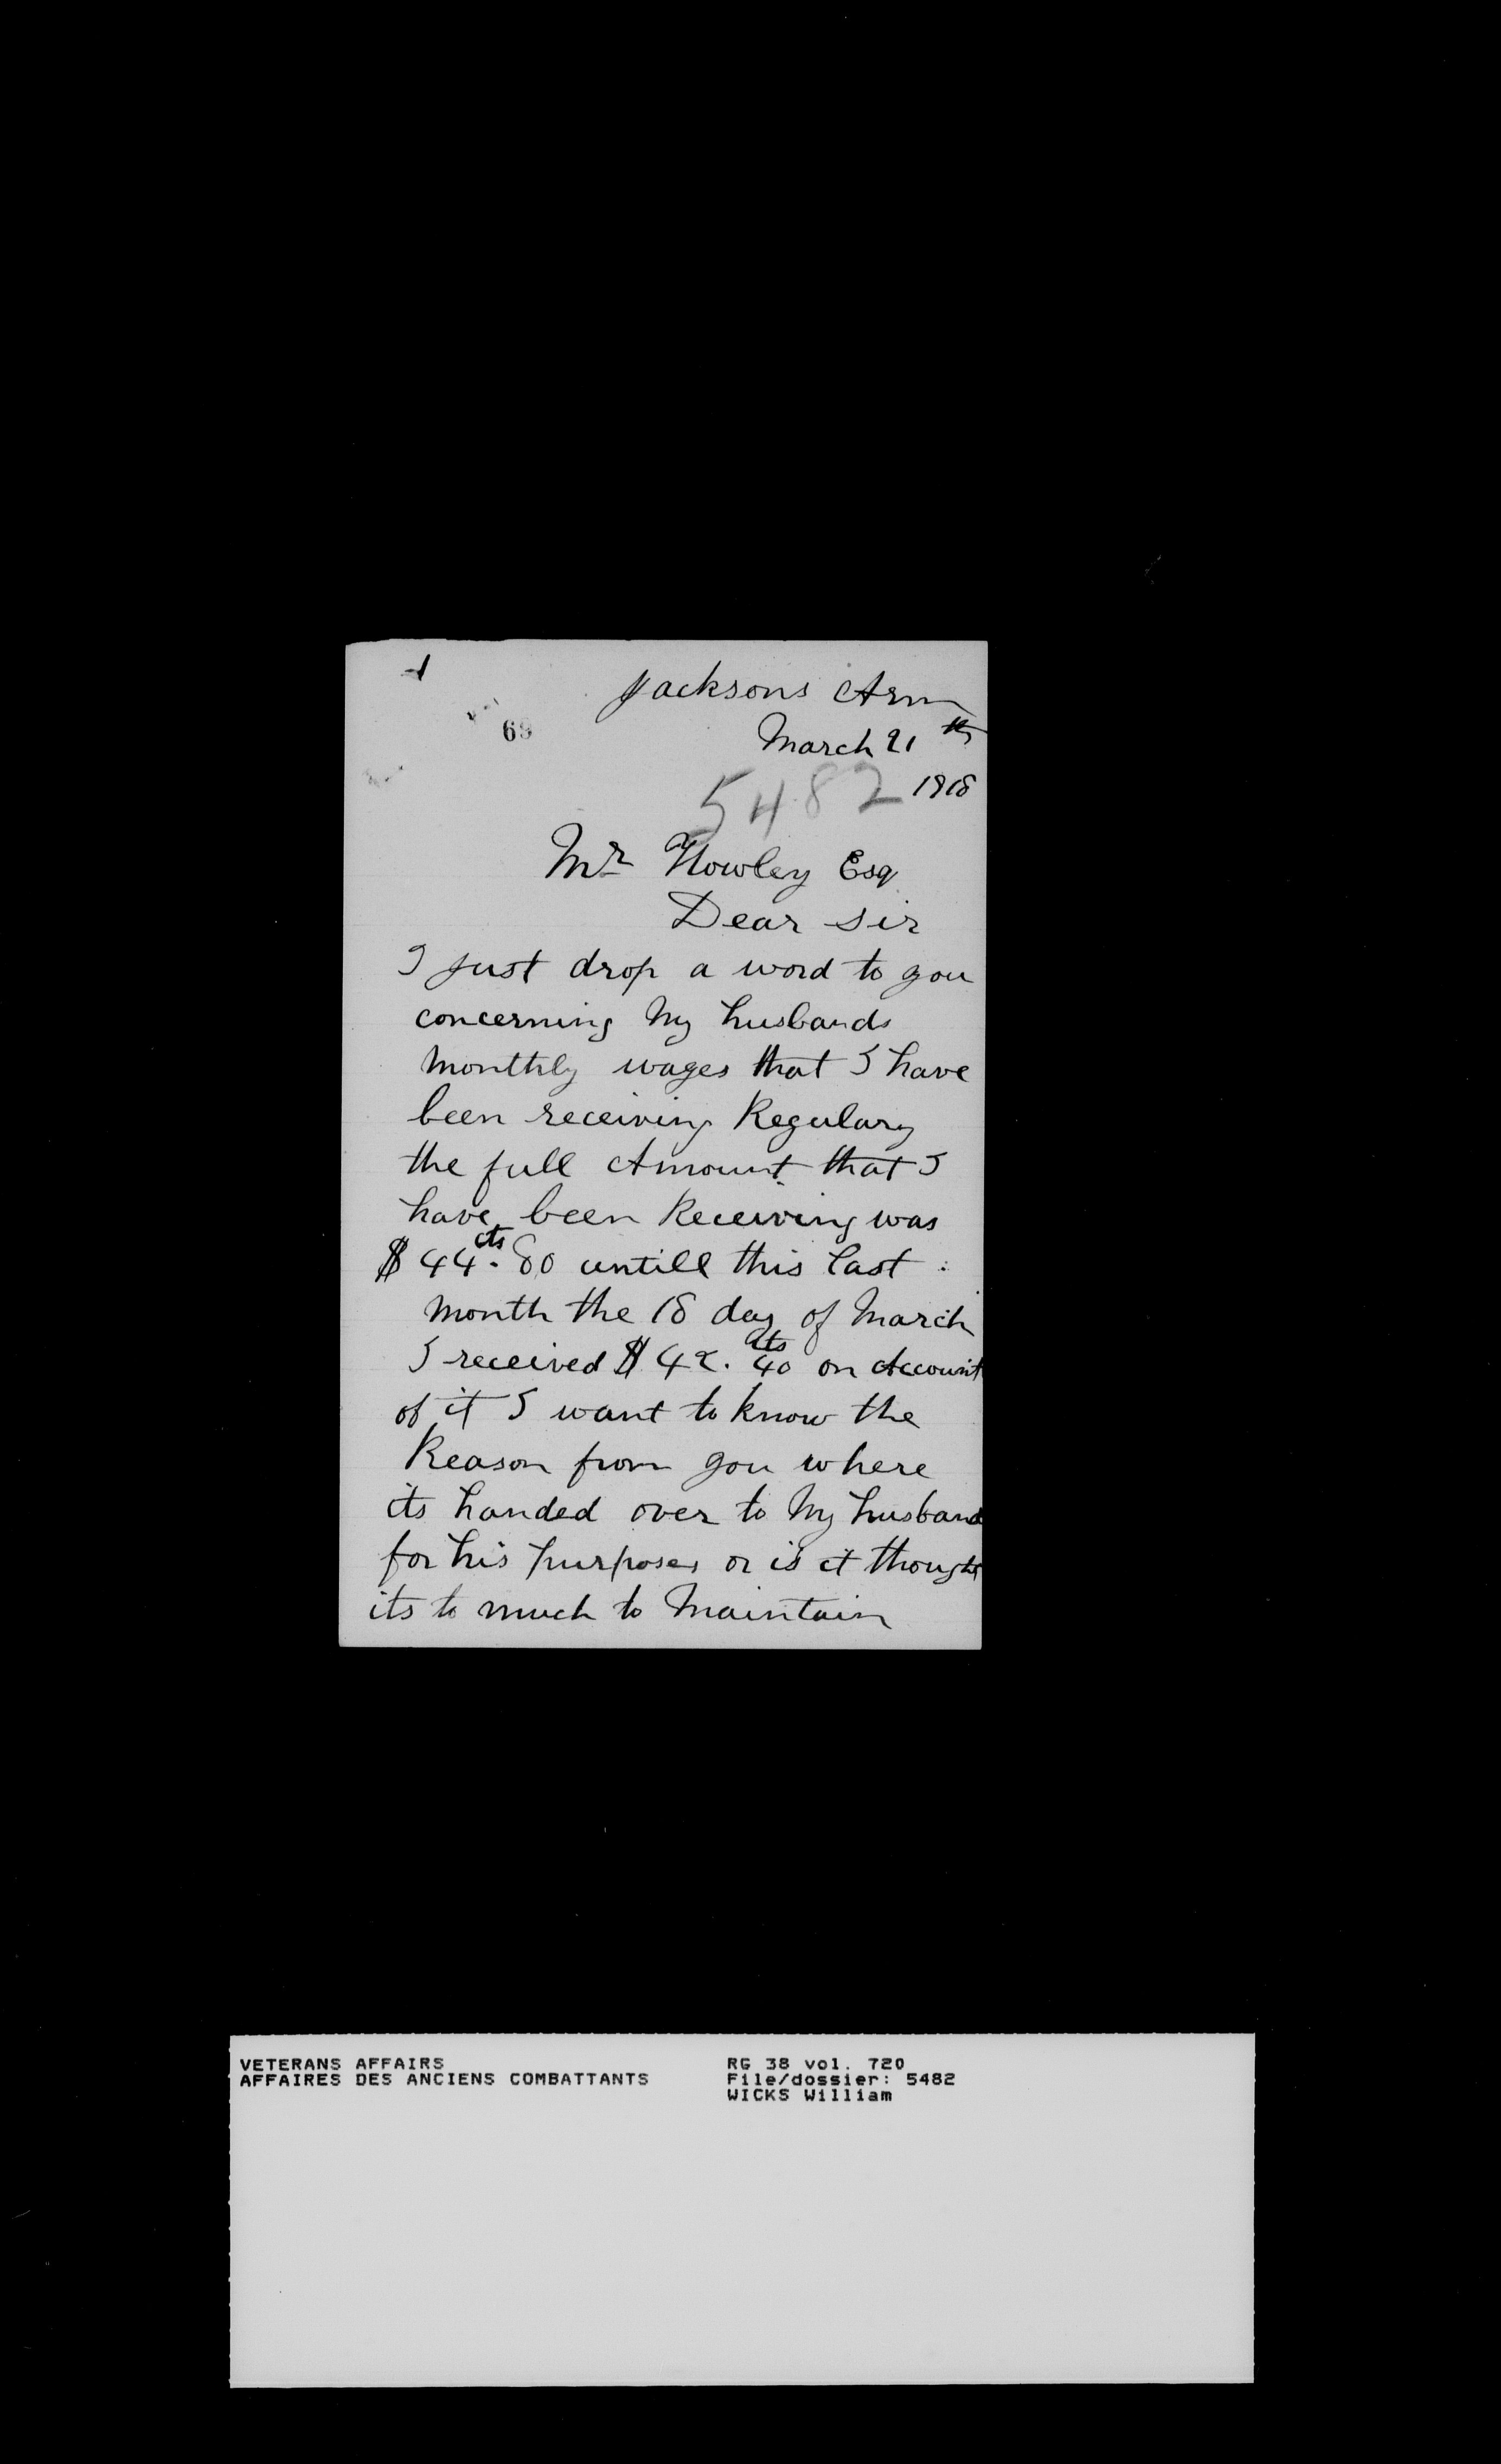 1
Jacksons Arm
69
March 21th
5482 1918
Mr Howley Esq
Dear Sir
I just drop a word to you
concerning my husbands
monthly wages that I have
been receiving Regulary
the full Amount that I
have been Receiving was
$44.cts80 untill this last
month the 18 day of March
I received $42.cts40 on Account
of it I want to know the
Reason from you where
its handed over to my husband
for his purposes or is it thought
its to much to Maintain
VETERANS AFFAIRS
AFFAIRES DES ANCIENS COMBATTANTS
RG 38 vol. 720
File/dossier: 5482
WICKS William